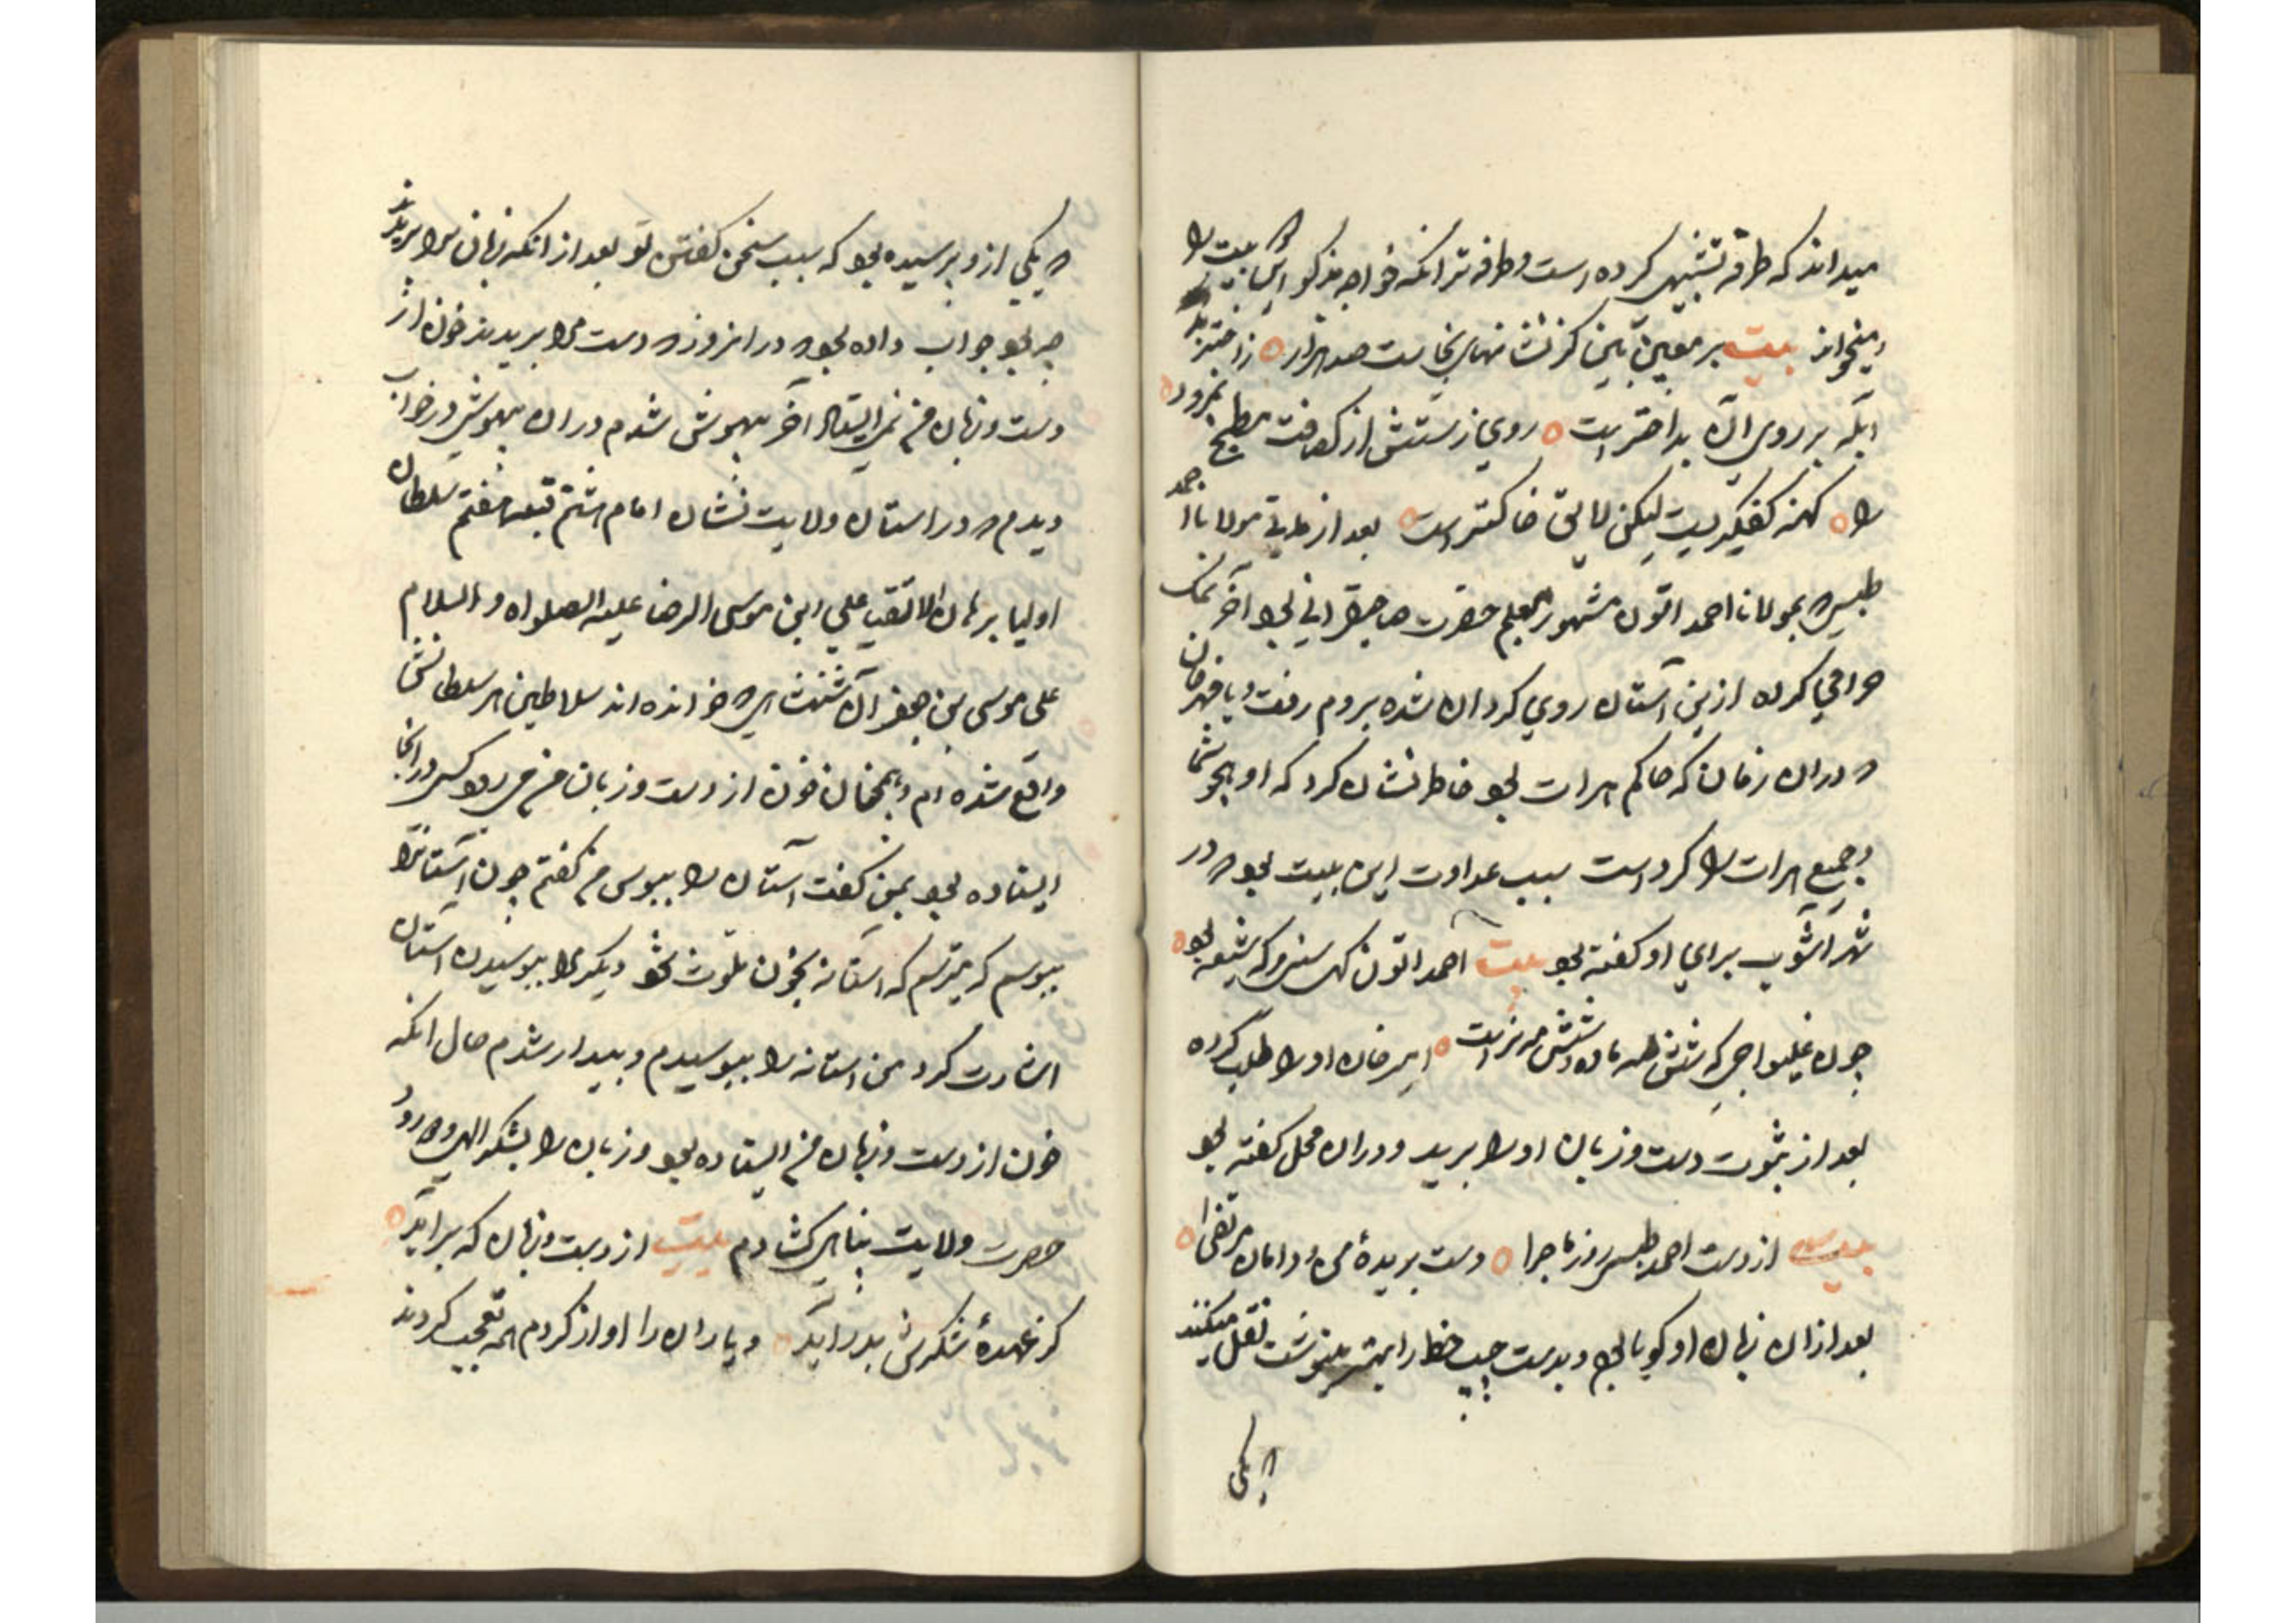 میداند که طرفه تشبیهی کرده است و طرفه تر انکه خواجه مذکور این بیت را
میخواند بیت بر معین بین کز نشانهای نجاست صد هزار
ابله بر روی آن بد اختر است روی زشتش از کثافت مطبخ نمرود
را کهنه کفگیریست لیکن لایق خاکستر است بعد از مدتی مولانا احمد
طبسی که بمولانا احمد اتون مشهور معلم حضرت صاحبقرانی بود آخر نمک
حرامی کرده ازین آستان روی کردان شده بروم رفت و با
که دران زمان که حاکم هرات بود خاطر نشان کرد که او هجو شما
و جمیع هرات را کرده است سبب عداوت این بیت بود که در
شهر آشوب برای او کفته بود بیت احمد اتون که سنی و که شیعه بود
چون غلیواجی که شش مه ماده و شش مه نر است امیر خان او را طلب کرده
بعد از ثبوت دست و زبان او را برید و دران محل کفته بود
بیت از دست احمد طبسی روز ماجرا دست بریده من و دامان مرتضی
بعد ازان زبان او کویا بود و بدست چپ خط را بهتر مینوشت نقل میکنند
که یکی
که یکی ازو پرسیده بود که سبب سخن کفتن تو بعد از انکه زبان ترا بریدند
چه بود جواب داده بود که در انروز که دست مرا بریدند خون از
دست و زبان من نمی ایستاد آخر بیهوش شدم دران بیهوشی در خواب
دیدم که در استان ولایت نشان امام هشتم قبله هفتم سلطان
اولیا برهان الاتقیا علی ابن موسی الرضا علیه الصلواه و السلام
علی موسی بن جعفر آن شهنشاهی که خوانده اند سلاطین هر سلطانش
واقع شده ام و همچنان خون از دست و زبان من می رود کسی در انجا
ایستاده بود بمن کفت آستان را ببوس من کفتم چون آستانرا
ببوسم که میترسم که استانه بخون ملوث شود دیکر مرا ببوسیدن استان
اشارت کرد من استانه را ببوسیدم و بیدار شدم حال انکه
خون از دست و زبان من ایستاده بود و زبان را بشکر الهی و درود
حضرت ولایت پناهی کشادم بیت از دست و زبان که برآید
کز عهدهٔ شکرش بدر آید و یاران را اواز کردم همه تعجب کردند